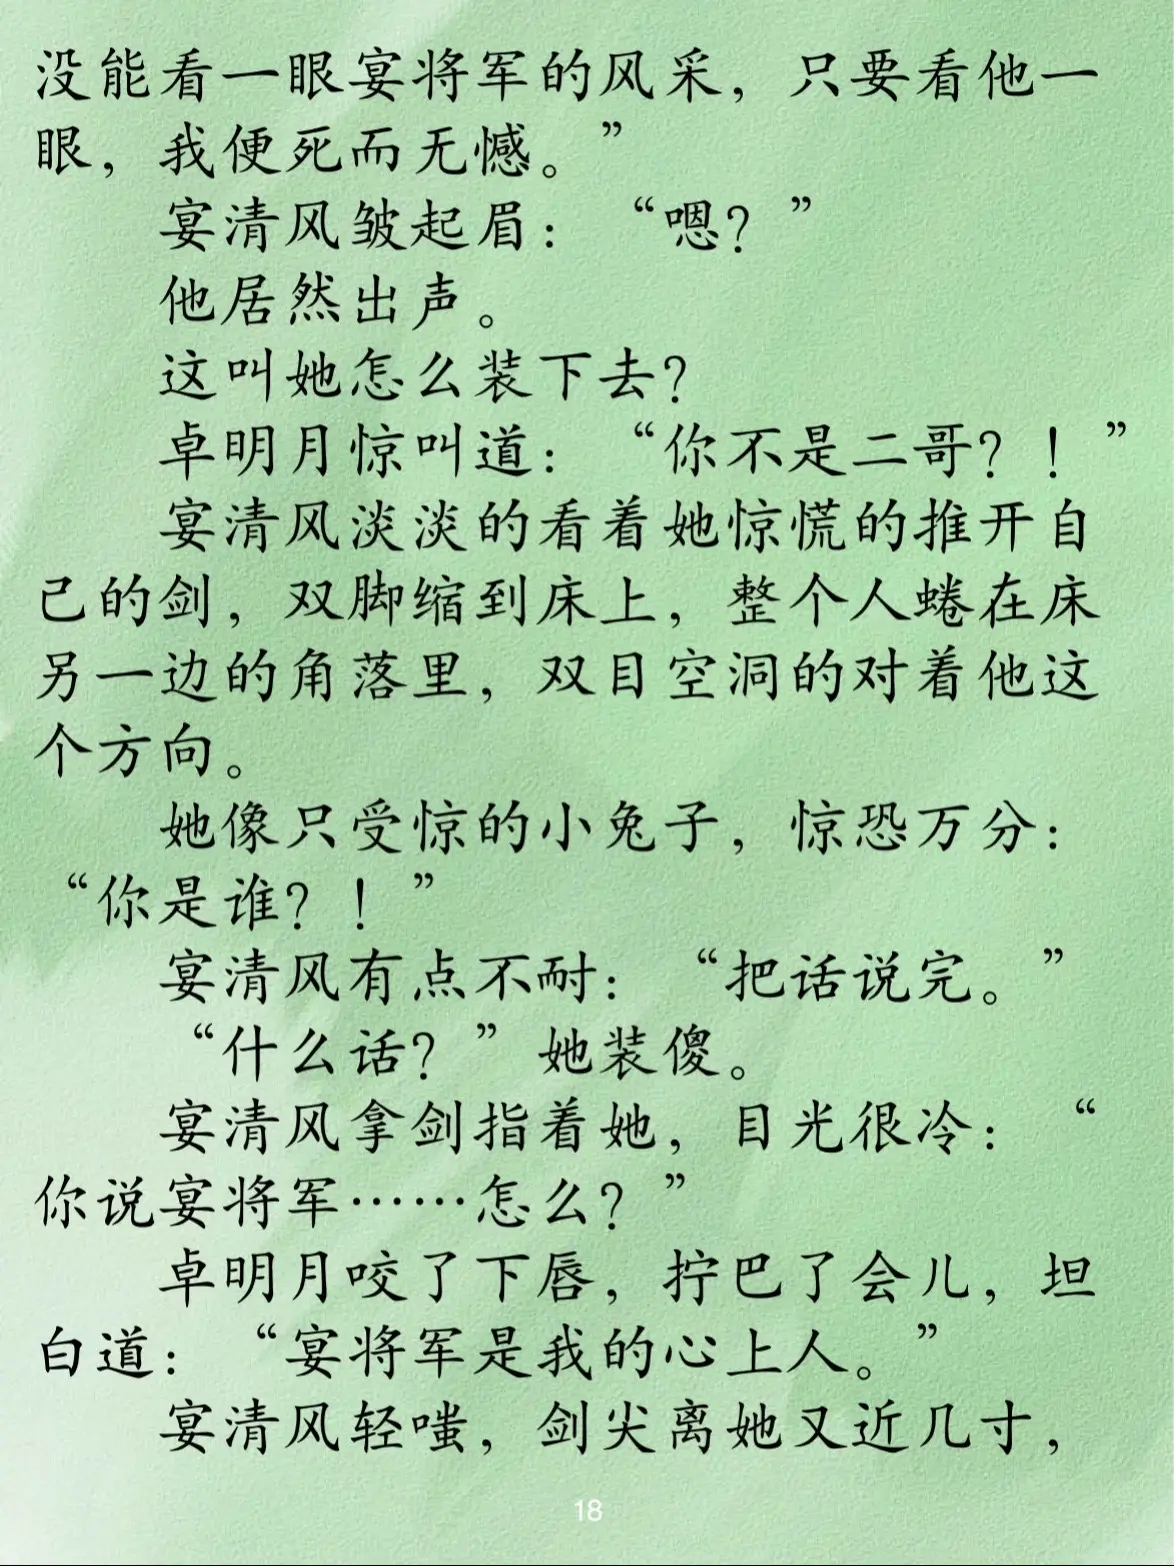 没能看一眼宴将军的风采，只要看他一
眼，我便死而无憾。”
宴清风皱起眉：“嗯？”
他居然出声。
这叫她怎么装下去？
卓明月惊叫道：“你不是二哥？！”
宴清风淡淡的看着她惊慌的推开自
己的剑，双脚缩到床上，整个人蜷在床
另一边的角落里，双目空洞的对着他这
个方向。
她像只受惊的小兔子，惊恐万分：
“你是谁？！”
宴清风有点不耐：“把话说完。”
“什么话？”她装傻。
宴清风拿剑指着她，目光很冷：“
你说宴将军……怎么？”
卓明月咬了下唇，拧巴了会儿，坦
白道：“宴将军是我的心上人。”
宴清风轻嗤，剑尖离她又近几寸，
18